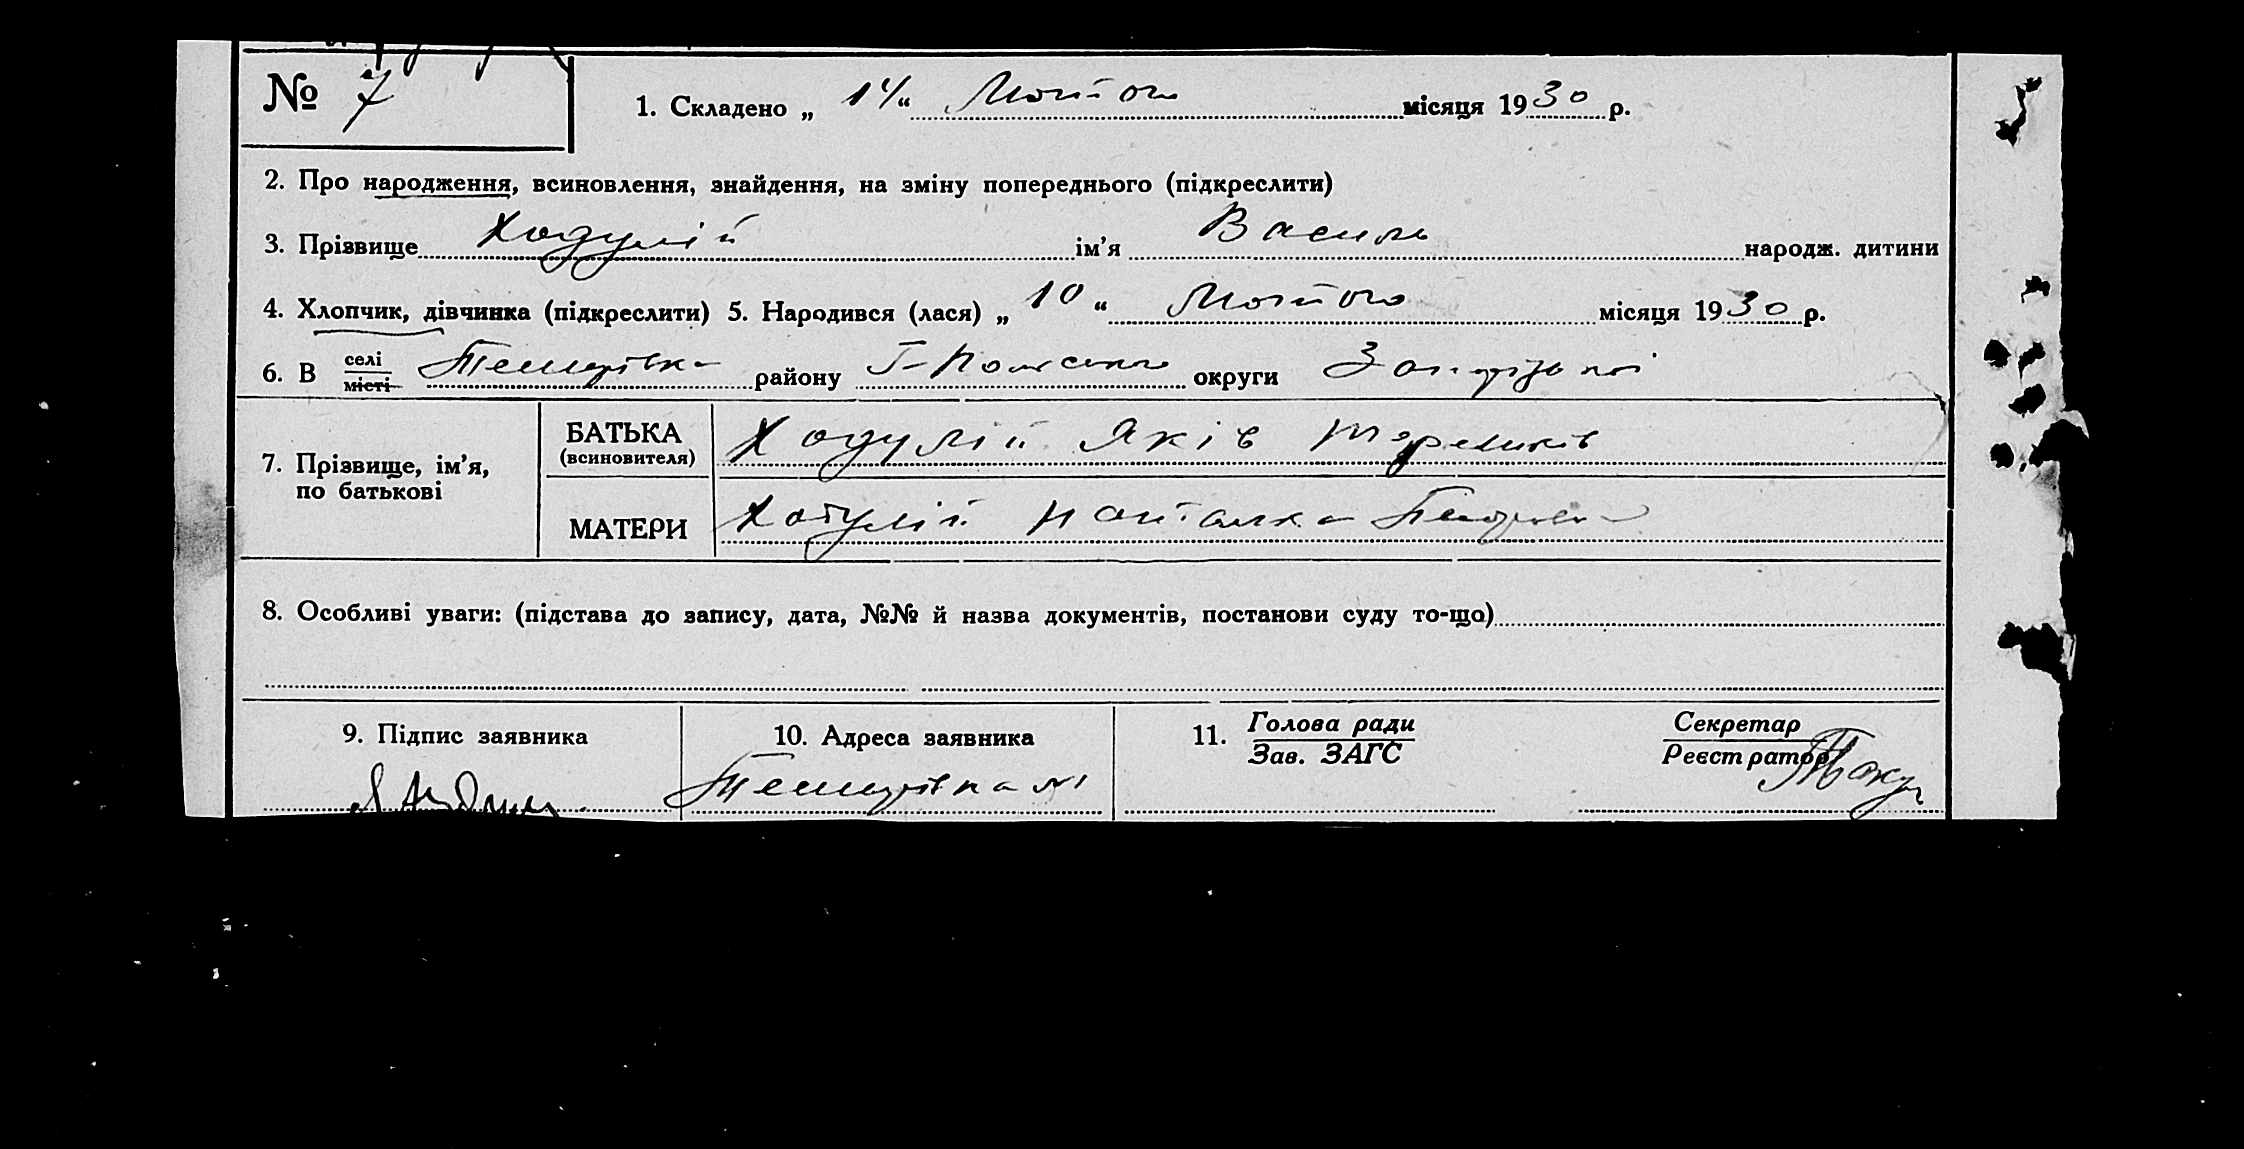 № 7
1. Складено „ 14 “ Лютого місяця 1930 р.
2. Про народження, всиновлення, знайдення, на зміну попереднього (підкреслити)
3. Прізвище Ходулій ім’я Василь народж. дитини
4. Хлопчик, дівчинка (підкреслити) 5. Народився (лася) „ 10 “ Лютого місяця 1930 р.
6. В селі місті району округи
7. Прізвище, ім’я, по батькові
БАТЬКА (всиновителя) Ходулій Яків
МАТЕРИ Ходулій Наталка
8. Особливі уваги: (підстава до запису, дата, №№ й назва документів, постанови суду то-що)
9. Підпис заявника 10. Адреса заявника 11. Голова ради Секретар
Зав. ЗАГС Реєстратор